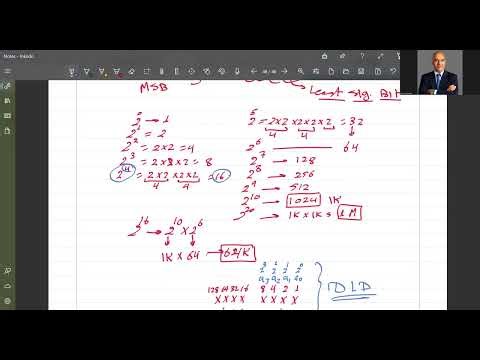 MSB
Least Sig. Bit
2⁰ → 1
2¹ = 2
2² = 2x2 = 4
2³ = 2x2x2 = 8
2⁴ = 2x2 x 2x2 = 16
4 4
2⁵ = 2x2 x 2x2 x 2 = 32
4 4
2⁶ 64
2⁷ → 128
2⁸ → 256
2⁹ → 512
2¹⁰ → 1024 1K
2²⁰ → 1K x 1K = 1M
2¹⁶ → 2¹⁰ x 2⁶
1K x 64 → 64K
2³ 2² 2¹ 2⁰
a₃ a₂ a₁ a₀
128 64 32 16 8 4 2 1
X X X X X X X X
DLD